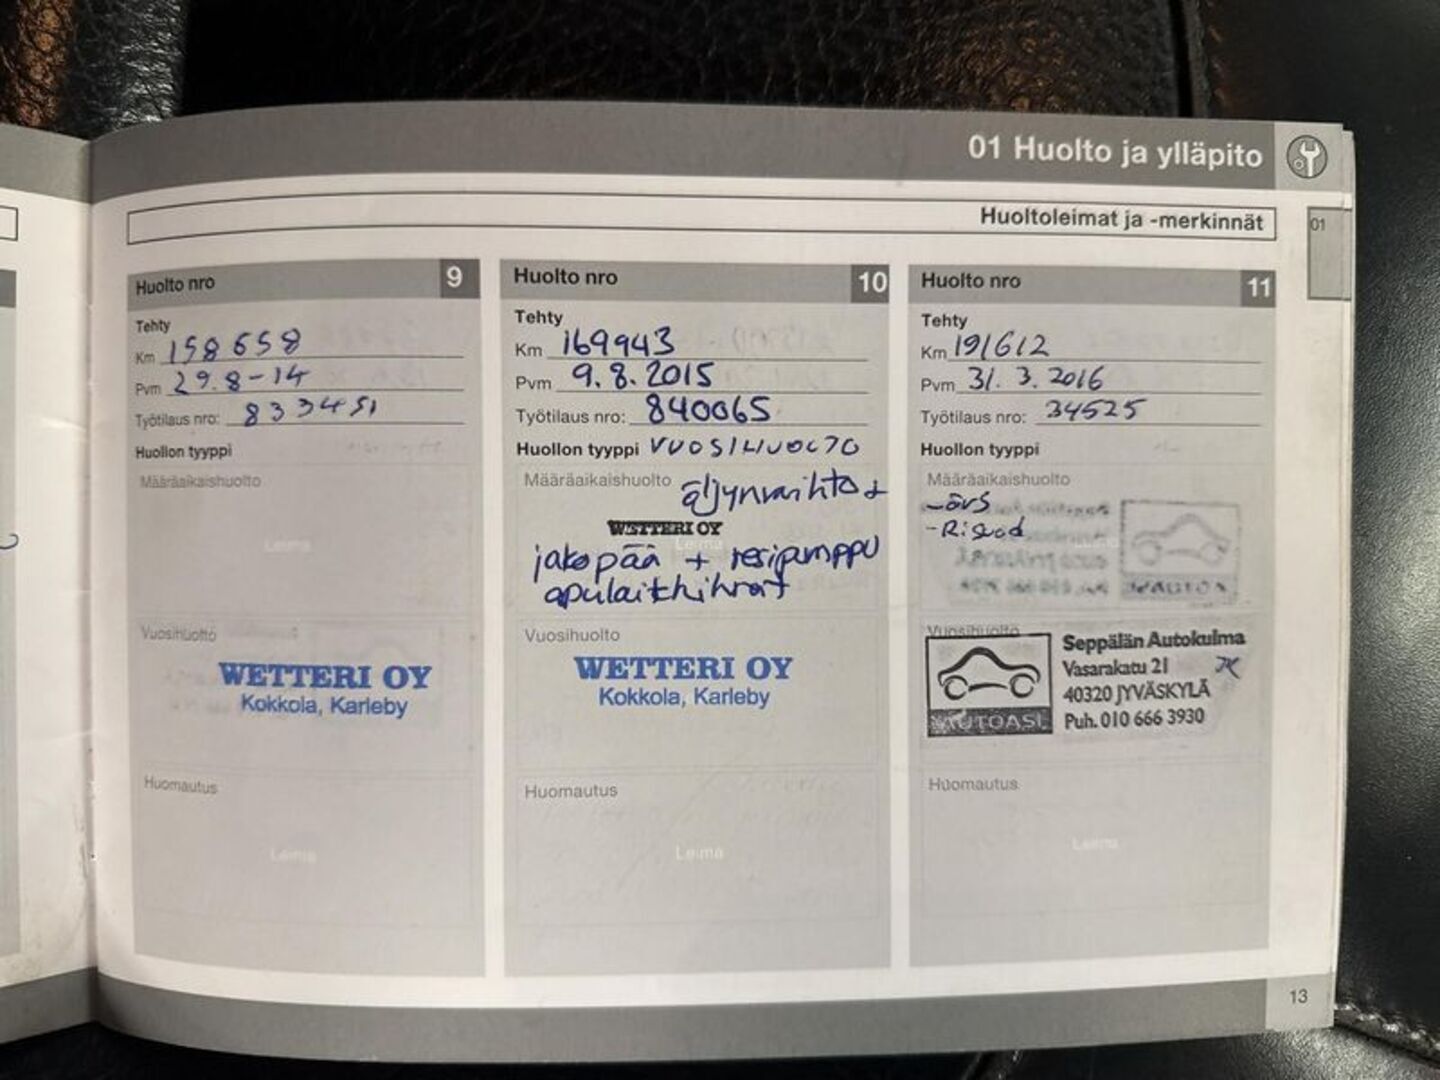 01 Huolto ja ylläpito
Huoltoleimat ja -merkinnät
01
Huolto nro 9
Tehty
Km 158658
Pvm 29.8-14
Työtilaus nro: 833451
Huollon tyyppi
Määräaikaishuolto
Leima
Vuosihuolto
WETTERI OY
Kokkola, Karleby
Huomautus
Leima
Huolto nro 10
Tehty
Km 169943
Pvm 9.8.2015
Työtilaus nro: 840065
Huollon tyyppi VUOSIHUOLTO
Määräaikaishuolto öljynvaihto +
WETTERI OY
Leima
jakopää + vesipumppu
apulaitehihnat
Vuosihuolto
WETTERI OY
Kokkola, Karleby
Huomautus
Leima
Huolto nro 11
Tehty
Km 191612
Pvm 31.3.2016
Työtilaus nro: 34525
Huollon tyyppi
Määräaikaishuolto
-övs
Vuosihuolto
AUTOASI
Seppälän Autokulma
Vasarakatu 21
40320 JYVÄSKYLÄ
Puh. 010 666 3930
Huomautus
Leima
13